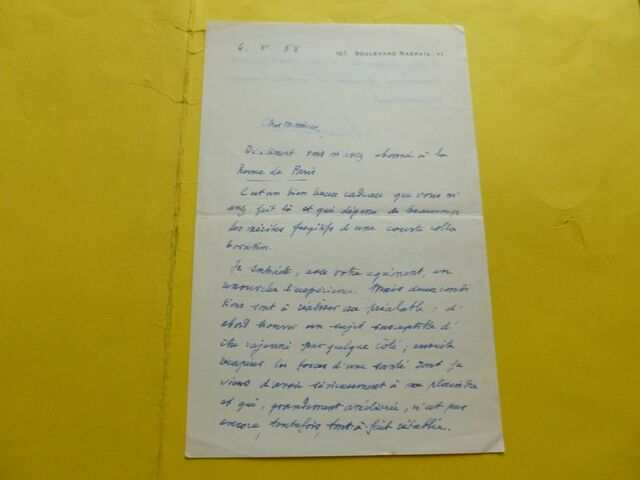 6. V. 58
127, BOULEVARD RASPAIL. VI
Cher monsieur,
Décidément vous m'avez abonné à la
Revue de Paris.
C'est un bien beau cadeau que vous m'
avez fait là et qui dépasse de beaucoup
les mérites fugitifs d'une courte colla
boration.
Je souhaite, avec votre agrément, en
renouveler l'expérience. Mais deux condi
tions sont à réaliser au préalable : d'
abord trouver un sujet susceptible d'
être rajeuni par quelque côté ; ensuite
récupérer les forces d'une santé dont je
viens d'avoir sérieusement à me plaindre
et qui, grandement améliorée, n'est pas
encore, toutefois, tout à fait rétablie.